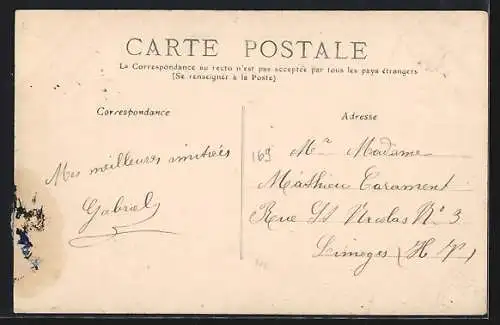 CARTE POSTALE
La Correspondance au recto n'est pas acceptée par tous les pays étrangers
(Se renseigner à la Poste)
Correspondance
Mes meilleures amitiés
Gabriel
Adresse
169
Mr Madame
Mathieu Tarament
Rue St Nicolas No 3
Limoges (H V)